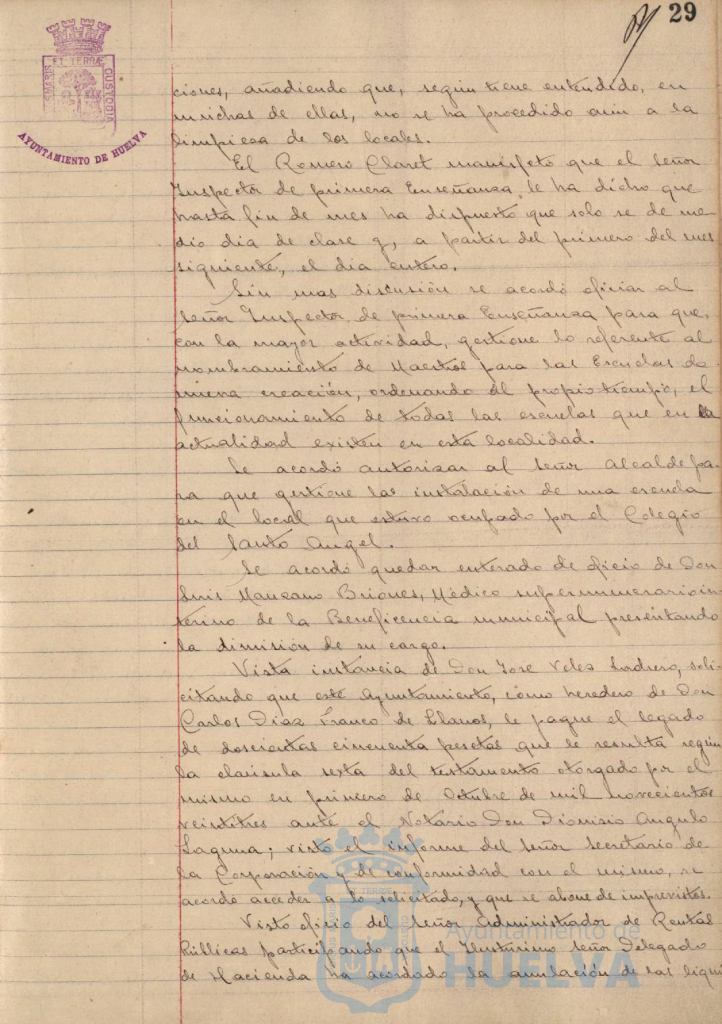 29
ET TERRÆ
CUSTODIA
AYUNTAMIENTO DE HUELVA
ciones, añadiendo que, según tiene entendido, en
muchas de ellas, no se ha procedido aún a la
limpieza de los locales.
El Romero Claret manifestó que el Señor
Inspector de primera Enseñanza, le ha dicho que
hasta fin de mes ha dispuesto que solo se de me
dio dia de clase y, a partir del primero del mes
siguiente, el dia entero.
Sin mas discusión se acordó oficiar al
Señor Inspector de primera Enseñanza para que,
con la mayor actividad, gestione lo referente al
nombramiento de Maestros para las Escuelas de
nueva creación, ordenando al propio tiempo, el
funcionamiento de todas las escuelas que en la
actualidad existen en esta localidad.
Se acordó autorizar al Señor Alcalde pa-
ra que gestione la instalación de una escuela
en el local que estuvo ocupado por el Colegio
del Santo Angel.
Se acordó quedar enterado de oficio de Don
Luis Manzano Briones, Médico supernumerario in-
terino de la Beneficencia municipal presentando
la dimisión de su cargo.
Vista instancia de Don Jose Velez, soli-
citando que este Ayuntamiento, como heredero de Don
Carlos Diaz Franco de Llanos, le pague el legado
de doscientas cincuenta pesetas que le resulta según
la clausula sexta del testamento otorgado por el
mismo en primero de Octubre de mil novecientos
veintitres ante el Notario Don Dionisio Angulo
Laguna; visto el informe del Señor Secretario de
la Corporación y de conformidad con el mismo, se
acordó acceder a lo solicitado, y que se abone de imprevistos.
Visto oficio del Señor Administrador de Rentas
Públicas participando que el Ilustrisimo Señor Delegado
de Hacienda ha acordado la anulación de las liqui
Ayuntamiento de
HUELVA